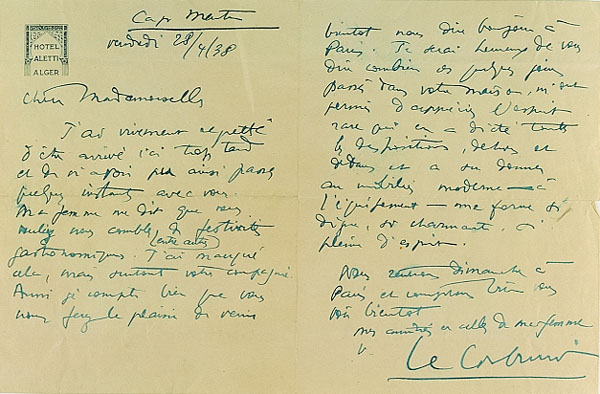 Cap Martin
HOTEL
ALETTI
ALGER
vendredi 28/4/38
chère Mademoiselle
J'ai vivement regretté
d'être arrivé ici trop tard
et de n'avoir pu ainsi passer
quelques instants avec vous.
Ma femme me dit que vous
vouliez nous combler de festivités
gastronomiques (entre autres). J'ai manqué
cela, mais surtout votre compagnie.
Aussi je compte bien que vous
nous ferez le plaisir de venir
bientôt nous dire bonjour à
Paris. Je serai heureux de vous
dire combien ces quelques jours
passés dans votre maison, m'ont
permis d'apprécier l'esprit
rare qui en a dicté toutes
les dispositions, dehors et
dedans et a su donner
au mobilier moderne – à
l'équipement – une forme si
digne, si charmante, si
pleine d'esprit.
Nous rentrons dimanche à
Paris et comptons bien vous
voir bientôt
mes amitiés et celles de ma femme
Le Corbusier